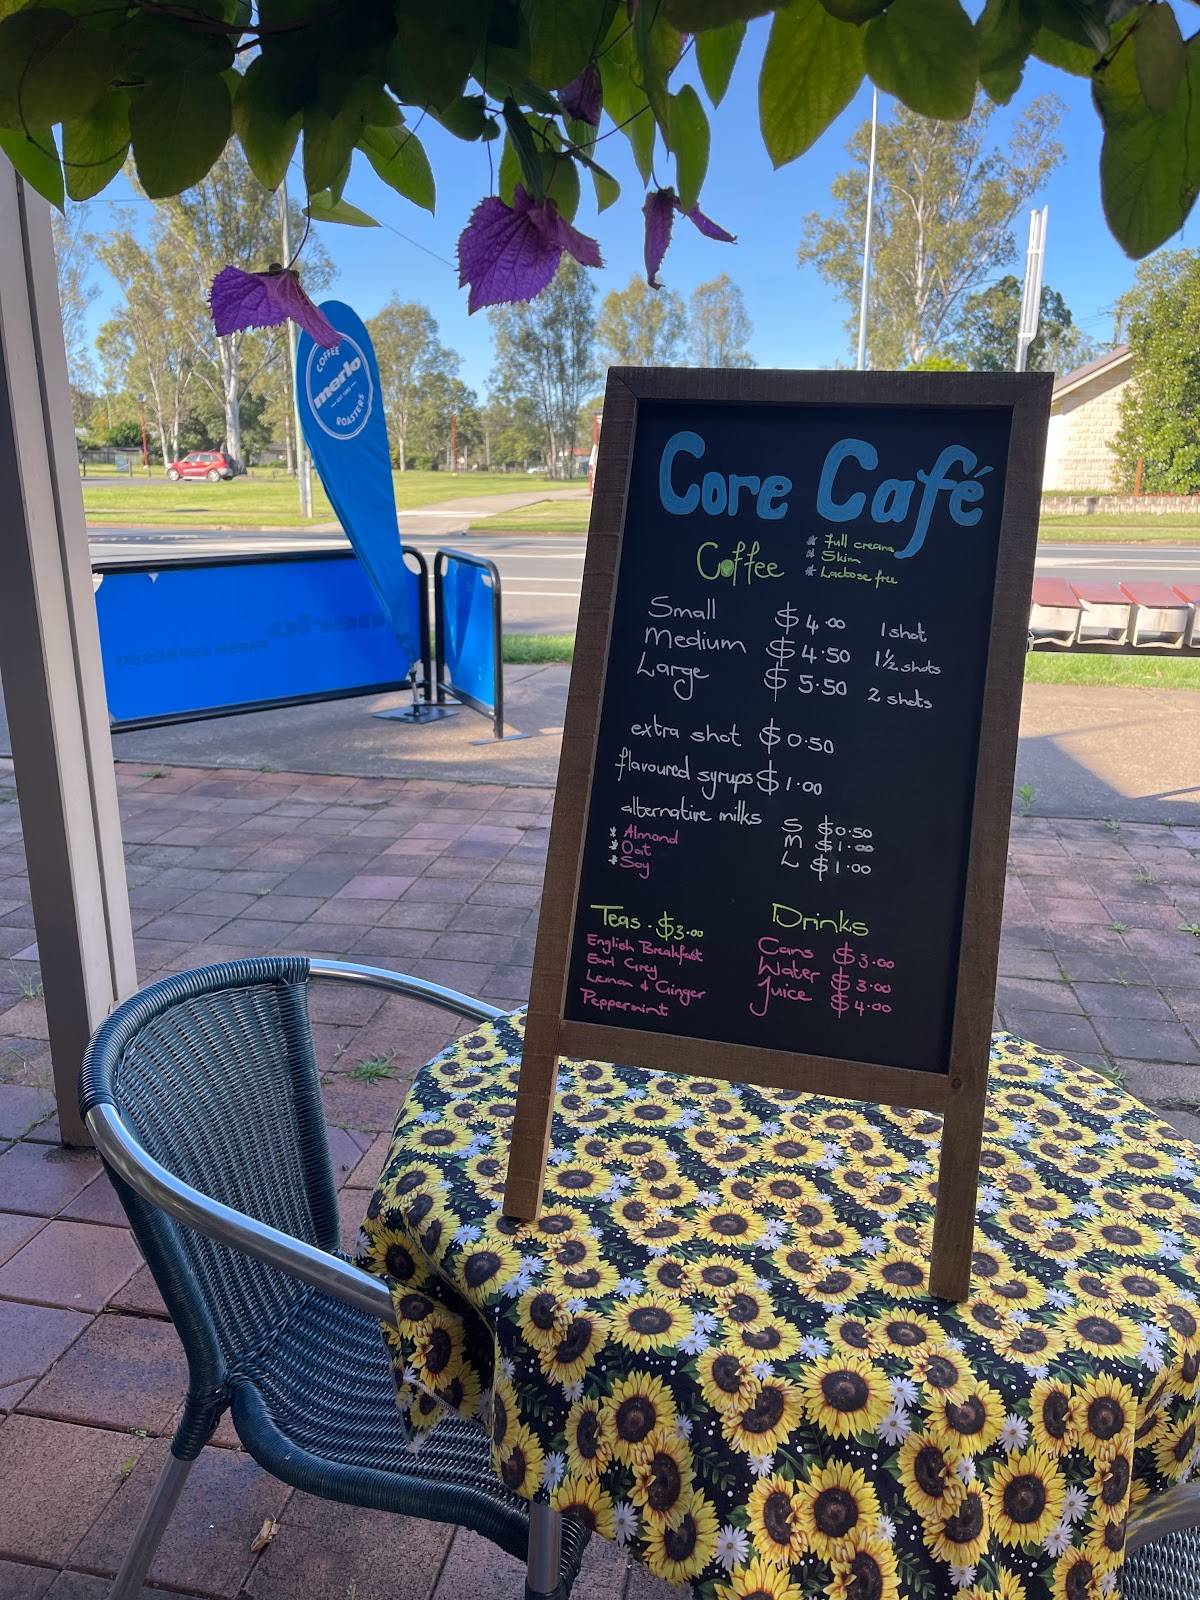 COFFEE
merlo
ROASTERS
merlo
FRESH ESPRESSO
Core Café
Coffee
* Full cream
* Skim
* Lactose free
Small $4.00 1 shot
Medium $4.50 1½ shots
Large $5.50 2 shots
extra shot $0.50
flavoured syrups $1.00
alternative milks S $0.50
* Almond M $1.00
* Oat L $1.00
* Soy
Teas . $3.00
English Breakfast
Earl Grey
Lemon & Ginger
Peppermint
Drinks
Cans $3.00
Water $3.00
Juice $4.00